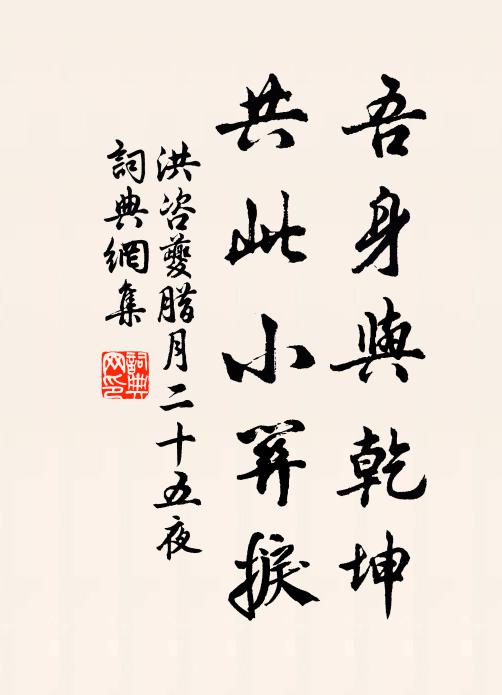 吾身與乾坤
共此小開捩
洪咨夔臘月二十五夜
詞典網集
詞典
网印